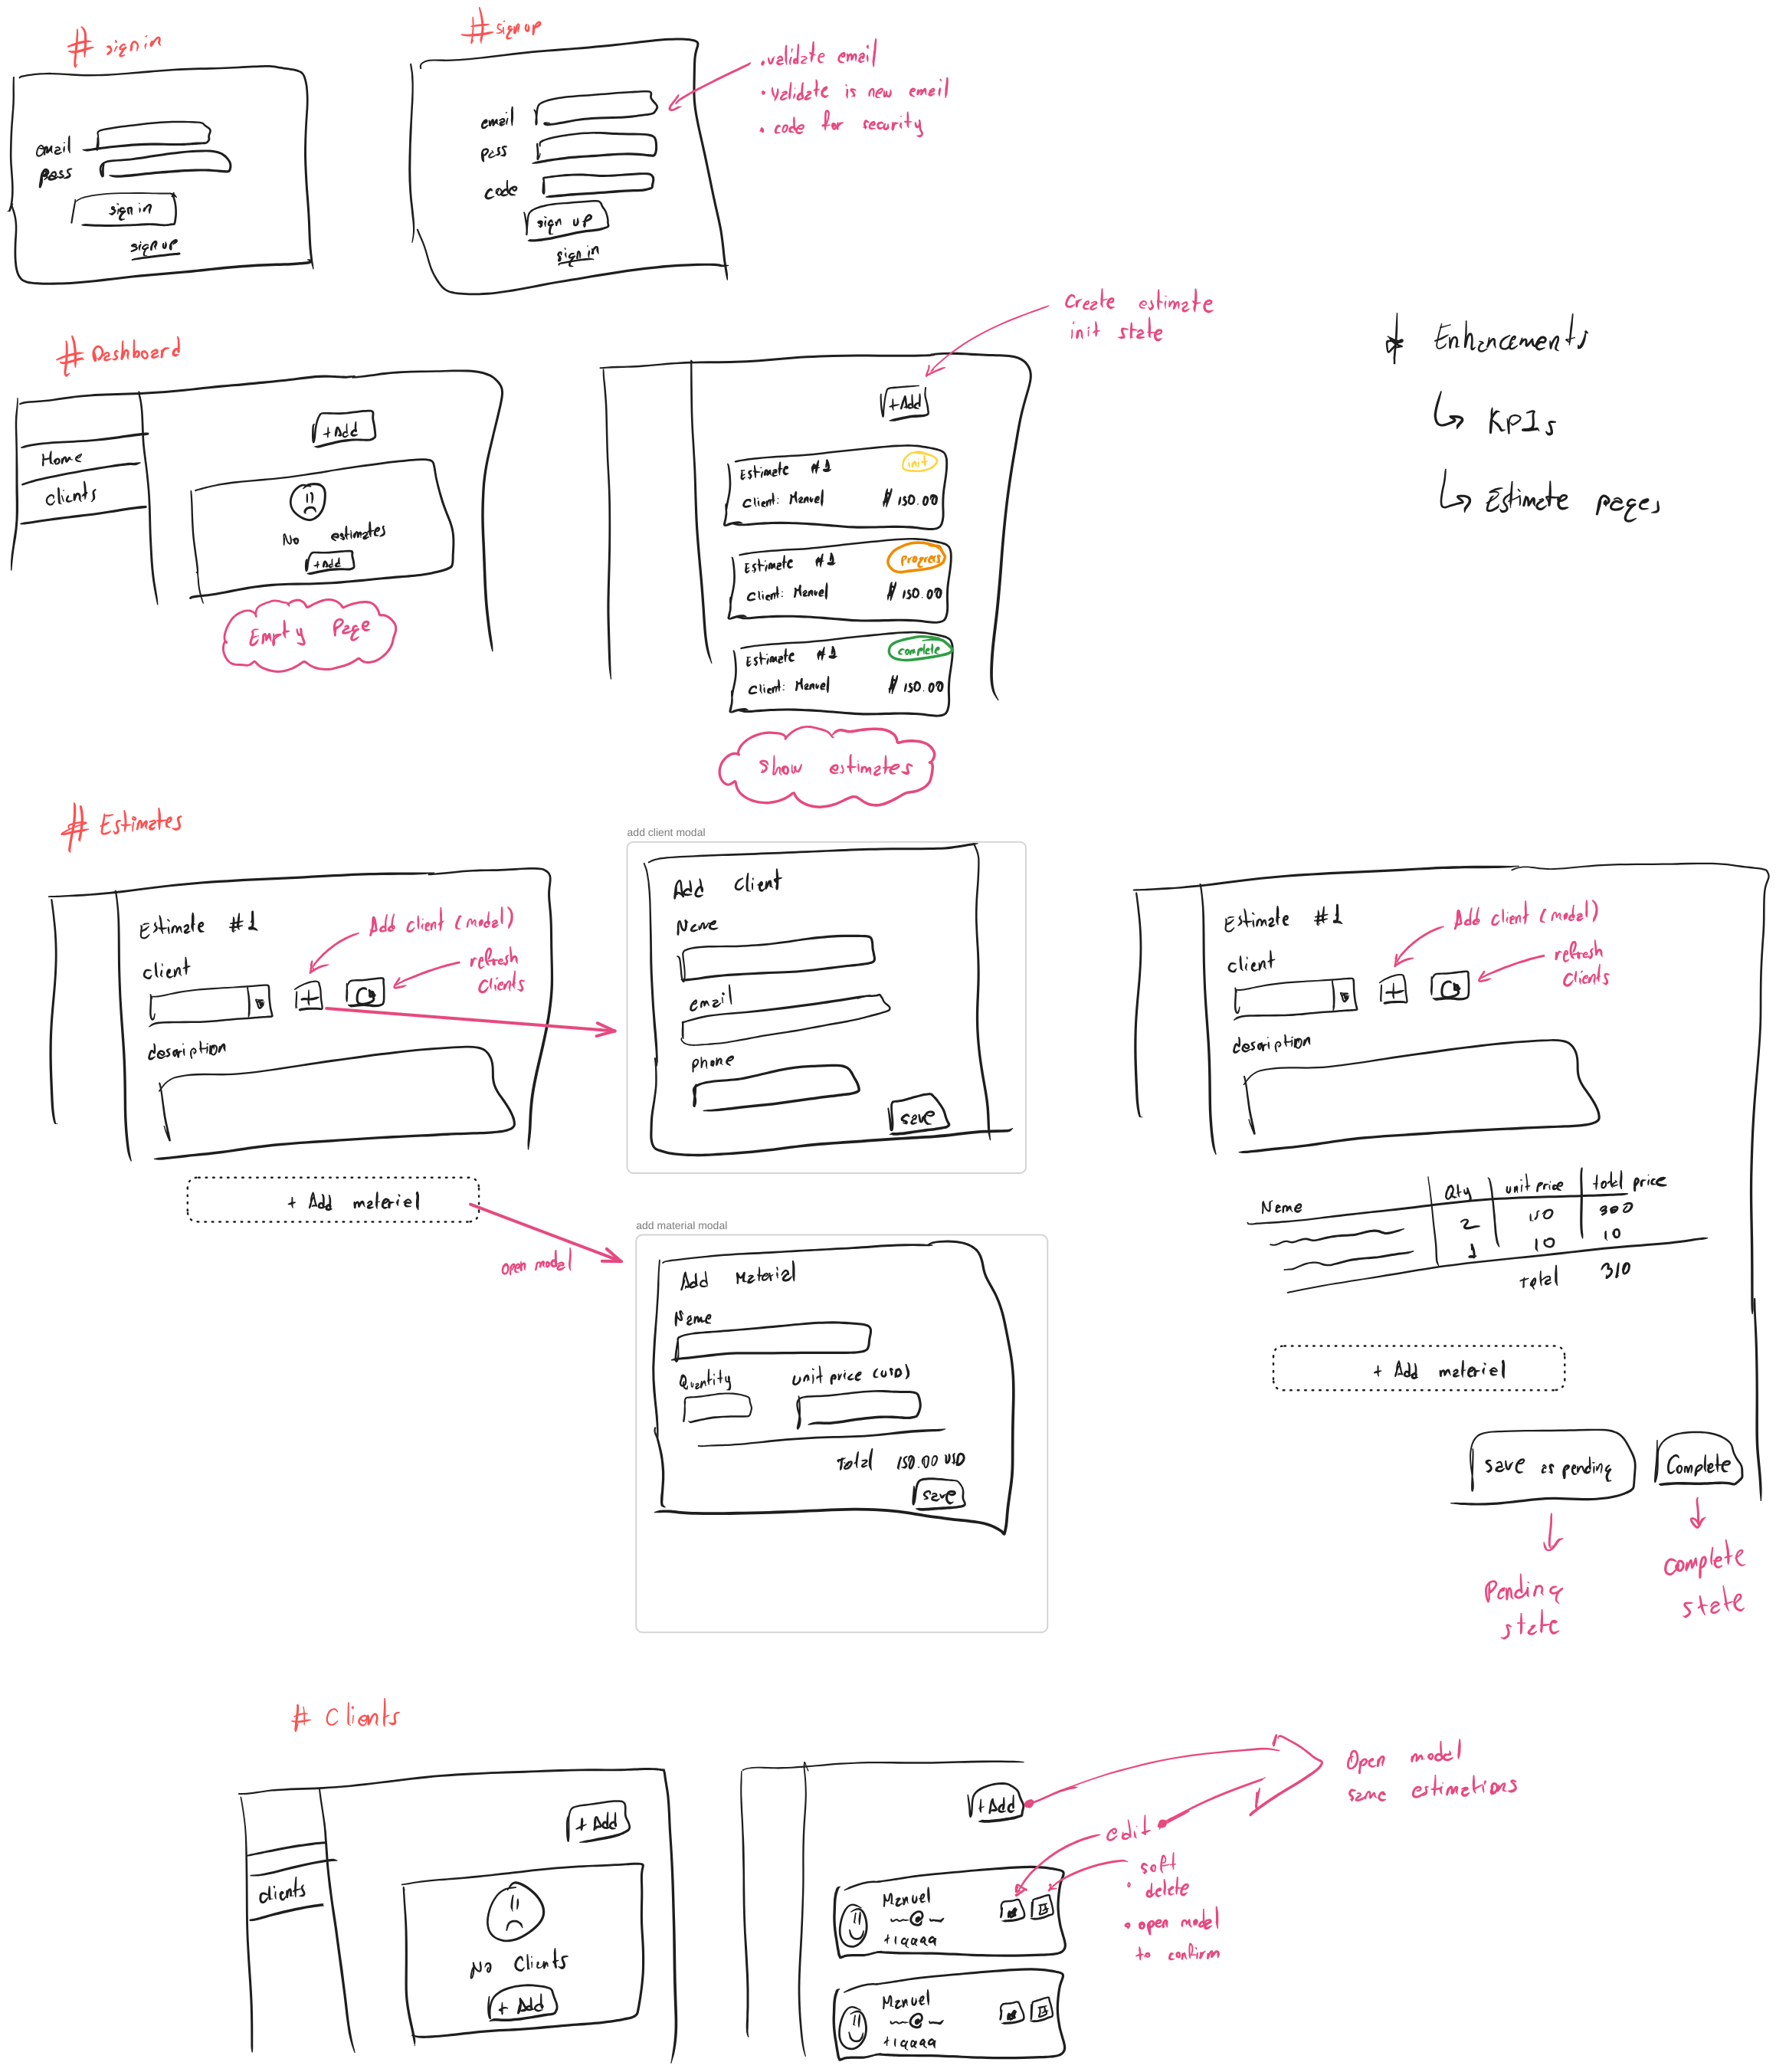 # sign in
email
pass
sign in
sign up
# sign up
email
pass
code
sign up
sign in
• validate email
• validate is new email
• code for security
# Dashboard
Home
clients
+ Add
No estimates
+ Add
Empty Page
Create estimate
init state
+ Add
Estimate #1 init
Client: Manuel # 150.00
Estimate #1 progress
Client: Manuel # 150.00
Estimate #1 complete
Client: Manuel # 150.00
Show estimates
* Enhancements
KPIs
Estimate pages
# Estimates
Estimate #1
Add client (modal)
client
refresh
clients
+
description
+ Add material
open modal
add client modal
Add Client
Name
email
phone
save
add material modal
Add Material
Name
Quantity unit price (USD)
Total 150.00 USD
save
Estimate #1
Add client (modal)
client
refresh
clients
+
description
Name Qty unit price total price
2 150 300
1 10 10
Total 310
+ Add material
save as pending
Complete
Pending
state
Complete
state
# Clients
clients
+ Add
No Clients
+ Add
+ Add
Open modal
same estimations
edit
• soft
delete
• open modal
to confirm
Manuel
~@~
+19999
Manuel
~@~
+19999